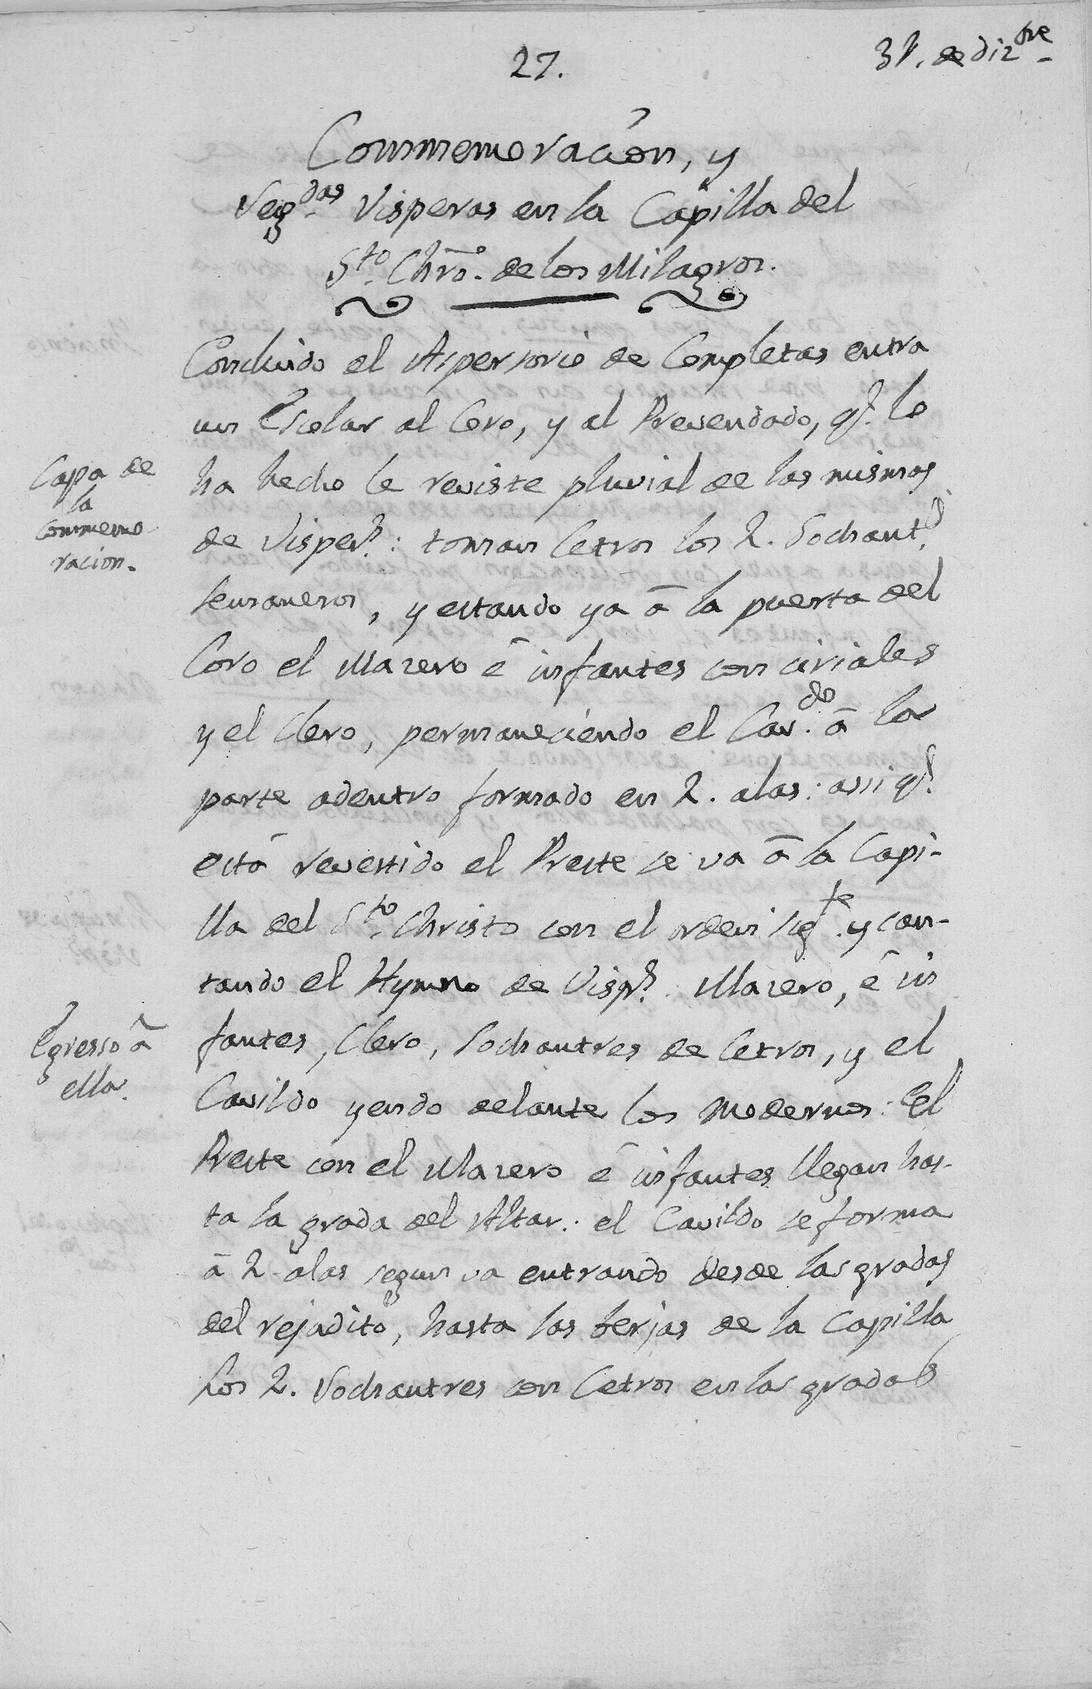 27.
31. de diz.bre
Commemoración, y
Seg.das Visperas en la Capilla del
S.to Chro. de los Milagros.
Concluido el Aspersorio de Completas entra
un Escolar al Coro, y al Prevendado, q.e lo
Capa de
la
Commemo
racion.
ha hecho le reviste pluvial de las mismas
de Visper.s: toman Cetros los 2. Sochant.s
semaneros, y estando ya â la puerta del
Coro el Mazero ê infantes con ciriales
y el Clero, permaneciendo el Cav.do â la
parte adentro formado en 2. alas: assi q.e
està revestido el Preste se va â la Capi-
lla del S.to Christo con el orden sig.te y can-
tando el Hymno de Visp.s Mazero, ê in
Egresso â
ella.
fantes, Clero, Sochantres de Cetros, y el
Cavildo yendo delante los modernos: El
Preste con el Mazero ê infantes llegan has-
ta la grada del Altar: el Cavildo se forma
â 2. alas segun va entrando desde las gradas
del rejadito, hasta las berjas de la Capilla
Los 2. Sochantres con Cetros en las gradas